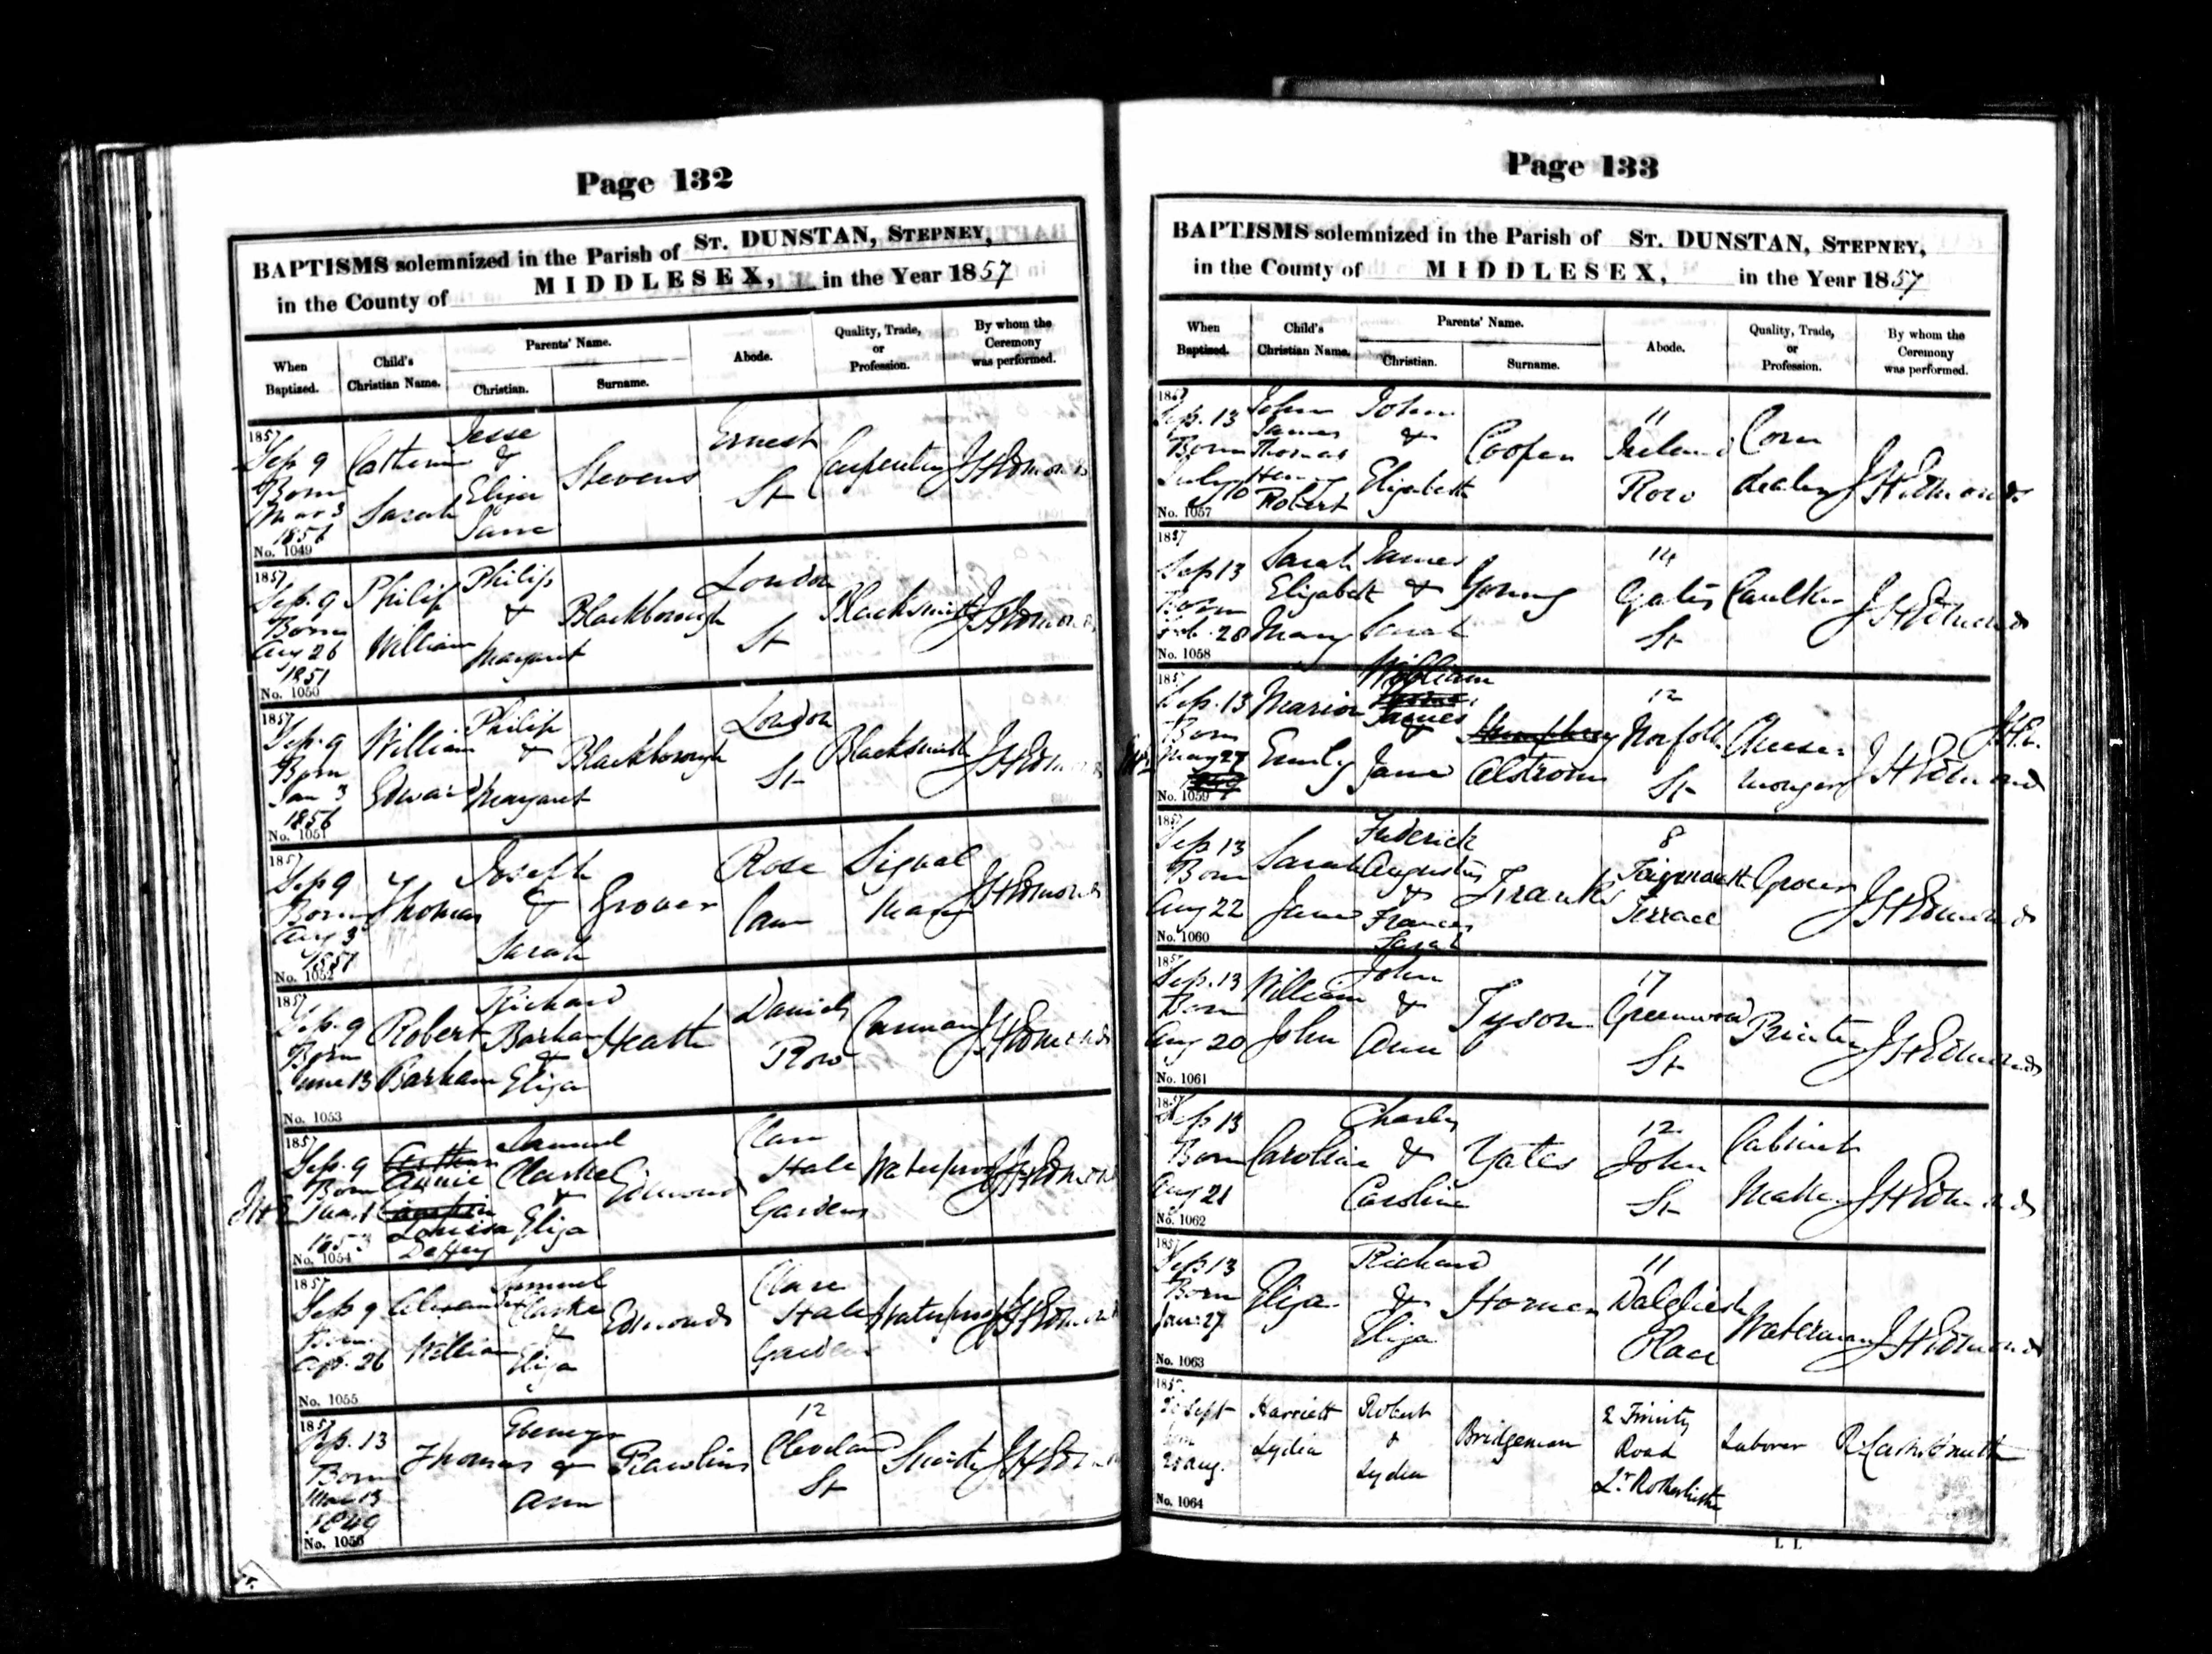 Page 132
BAPTISMS solemnized in the Parish of ST. DUNSTAN, STEPNEY,
in the County of MIDDLESEX, in the Year 1857
When Baptized. Child's Christian Name. Parents' Name. Christian. Surname. Abode. Quality, Trade, or Profession. By whom the Ceremony was performed.
1857
Sep. 9 Catherine Jesse Stevens Ernest Carpenter JHEdmonds
Born Sarah & Eliza St
Mar 3 Jane
1856
No. 1049
1857
Sep. 9 Philip Philip Blackborough London Blacksmith JHEdmonds
Born William & St
Aug 26 Margaret
1851
No. 1050
1857
Sep. 9 William Philip Blackborough London Blacksmith JHEdmonds
Born Edward & St
Jan 3 Margaret
1856
No. 1051
1857
Sep 9 Thomas Joseph Grover Rose Signal JHEdmonds
Born & Lane
Aug 3 Sarah
1851
No. 1052
1857
Sep. 9 Robert Richard Heath Daniels Carman JHEdmonds
Born Barham Barham Row
June 13 & Eliza
No. 1053
1857
Sep. 9 Arthur Samuel Edmonds Clare JHEdmonds
Born Annie Clarke Hale
JHE Louisa & Eliza Gardens
1853
No. 1054
1857
Sep 9 Alexander Samuel Edmonds Clare JHEdmonds
Born William Clarke Hale
Apr. 26 & Eliza Gardens
No. 1055
1857
Sep. 13 Thomas Ebenezer Rawlins 12 Smith JHEdmonds
Born & Cleveland
Mar 13 Ann St
1849
No. 1056
Page 133
BAPTISMS solemnized in the Parish of ST. DUNSTAN, STEPNEY,
in the County of MIDDLESEX, in the Year 1857
When Baptized. Child's Christian Name. Parents' Name. Christian. Surname. Abode. Quality, Trade, or Profession. By whom the Ceremony was performed.
1857
Sep. 13 John John Cooper 11 Corn JHEdmonds
Born James & Ireland dealer
July 10 Thomas Elizabeth Row
Henry
Robert
No. 1057
1857
Sep 13 Sarah James Young 14 Caulker JHEdmonds
Born Elizabeth & Gates
Feb. 28 Mary Sarah St
No. 1058
1857
Sep. 13 Marion William Humphrey 12 Cheese JHE
Born Emily Jaques Alstrom Norfolk monger JHEdmonds
May 27 & Jane St
No. 1059
1857
Sep 13 Sarah Frederick Franks 8 Grocer JHEdmonds
Born Jane Augustus Terrace
Aug 22 & Frances
Sarah
No. 1060
1857
Sep. 13 William John Tyson 17 Printer JHEdmonds
Born John & Greenwood
Aug 20 Ann St
No. 1061
1857
Sep 13 Caroline Charles Yates 12 Cabinet JHEdmonds
Born & John Maker
Aug 21 Caroline St
No. 1062
1857
Sep 13 Eliza Richard 11 Waterman JHEdmonds
Born & Dalgliesh
Jan. 27 Eliza Place
No. 1063
1857
Sept Harriett Robert Bridgeman 2 Trinity Laborer
born Lydia & Road
25 Aug. Lydia Lr. Rotherhithe
No. 1064
L L